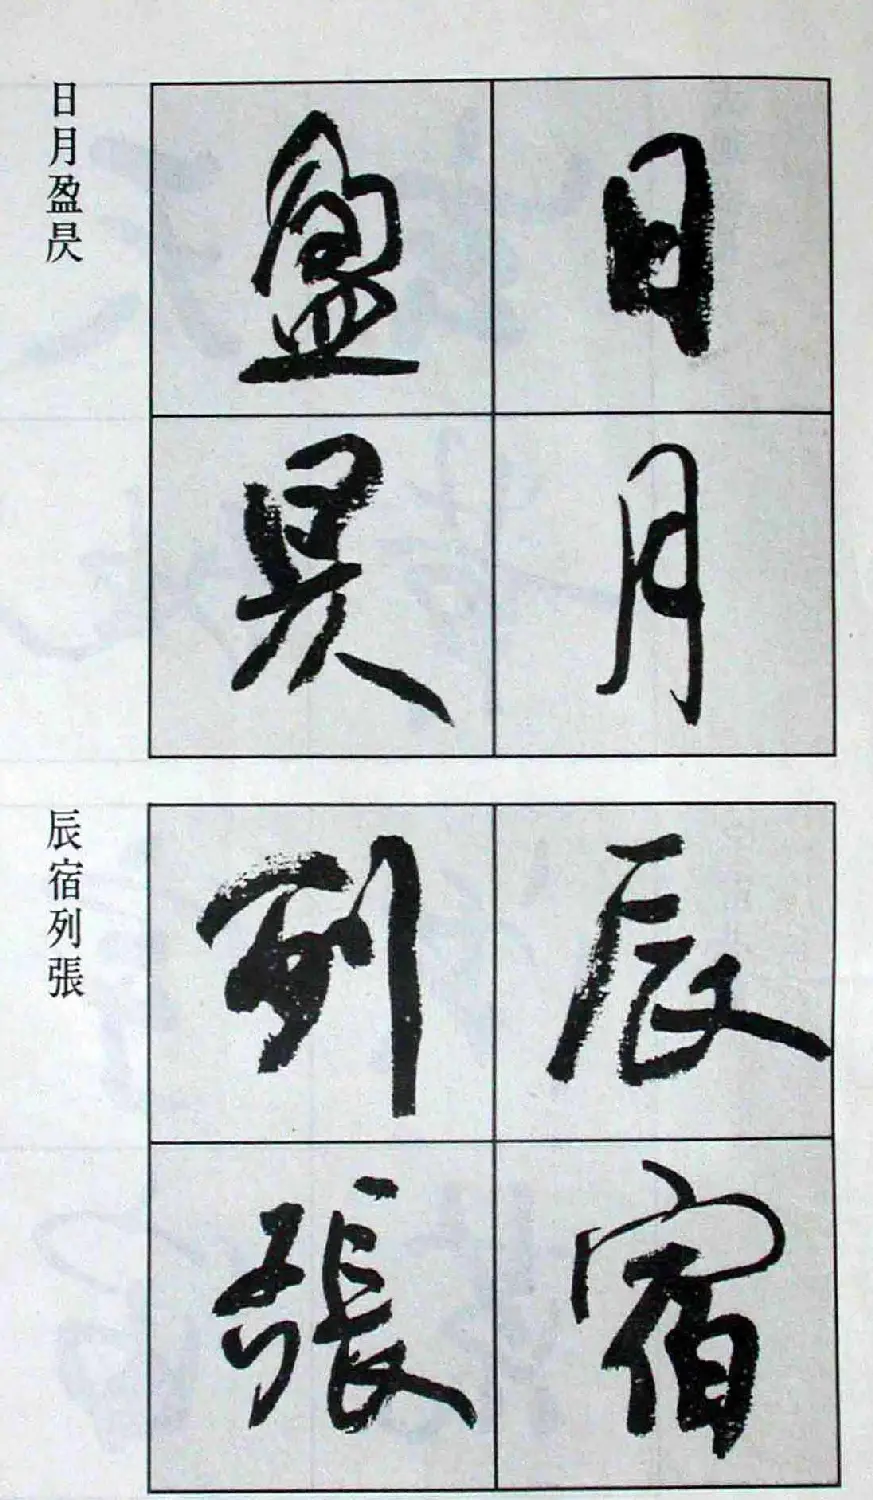 日月
盈昃
日月盈昃
辰宿
列張
辰宿列張